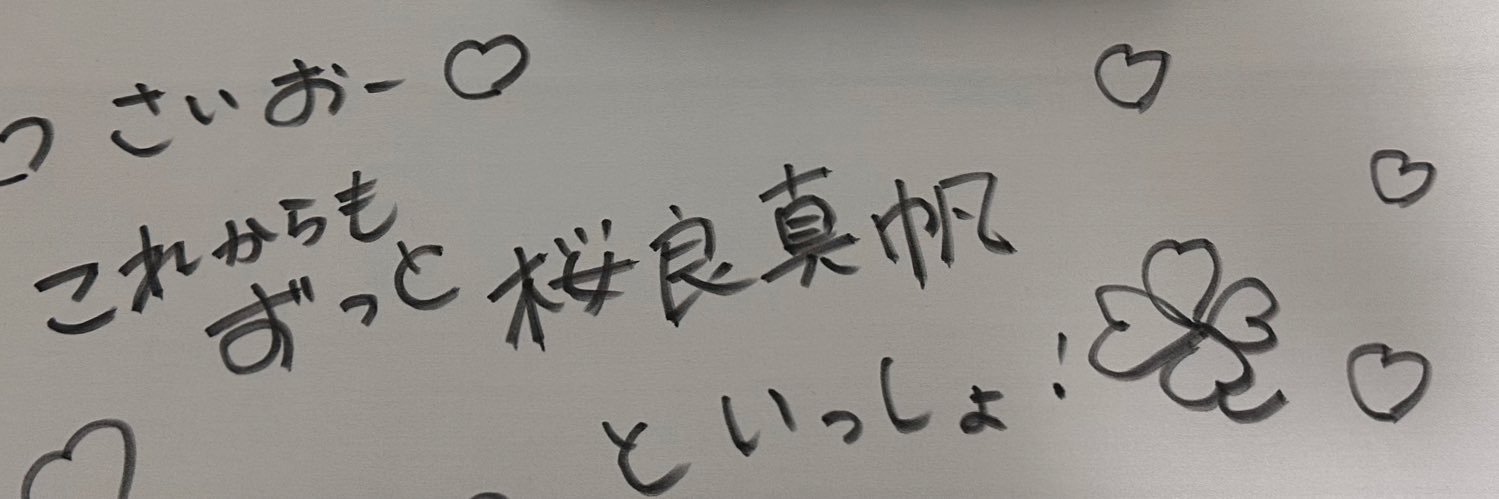 さいおー♡
これからも
ずっと桜良真帆
といっしょ!